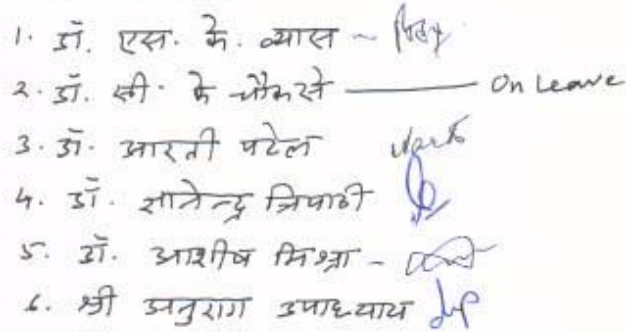 1. डॉ. एस. के. व्यास -
2. डॉ. सी. के चौकसे — On Leave
3. डॉ. आरती पटेल
4. डॉ. ज्ञानेन्द्र त्रिपाठी
5. डॉ. आशीष मिश्रा -
6. श्री अनुराग उपाध्याय